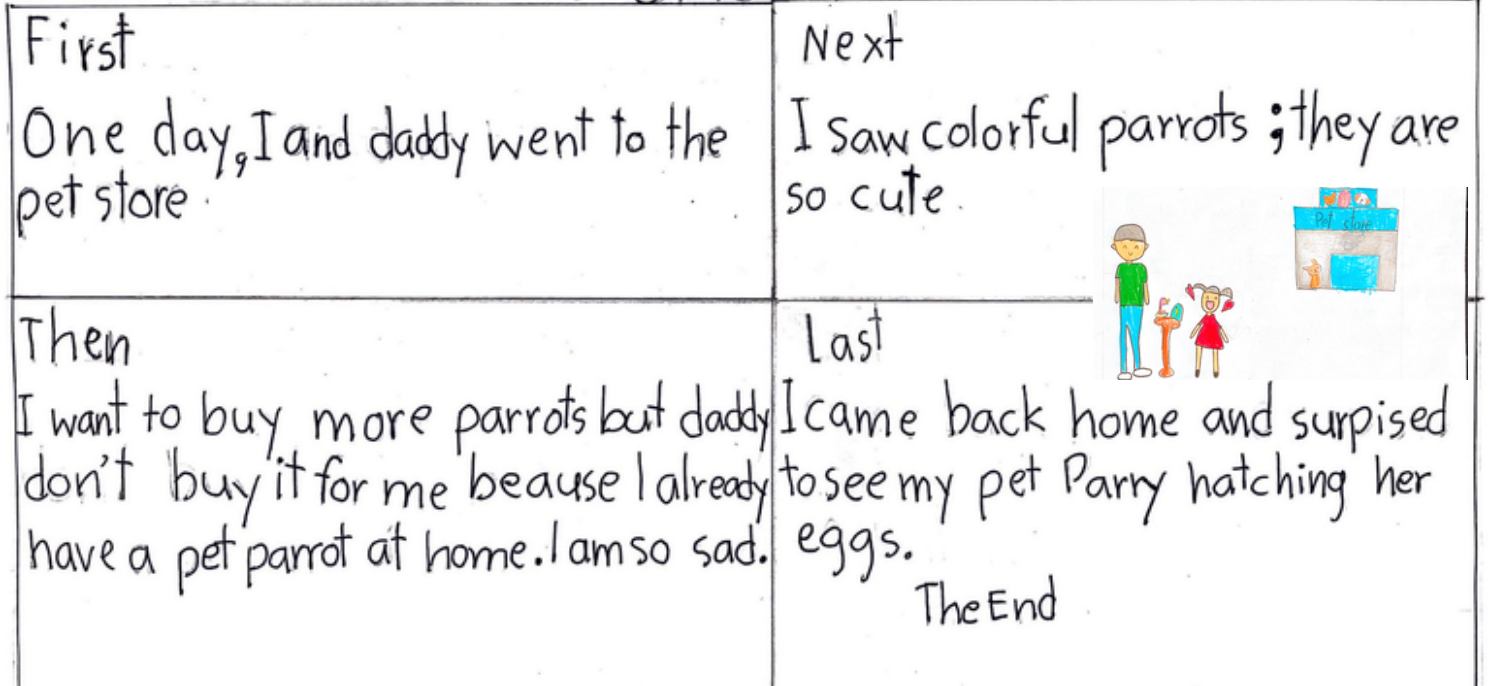 First
One day, I and daddy went to the
pet store.
Next
I saw colorful parrots ; they are
so cute.
Pet store
Then
I want to buy more parrots but daddy
don't buy it for me beause I already
have a pet parrot at home. I am so sad.
Last
I came back home and surpised
to see my pet Parry hatching her
eggs.
The End